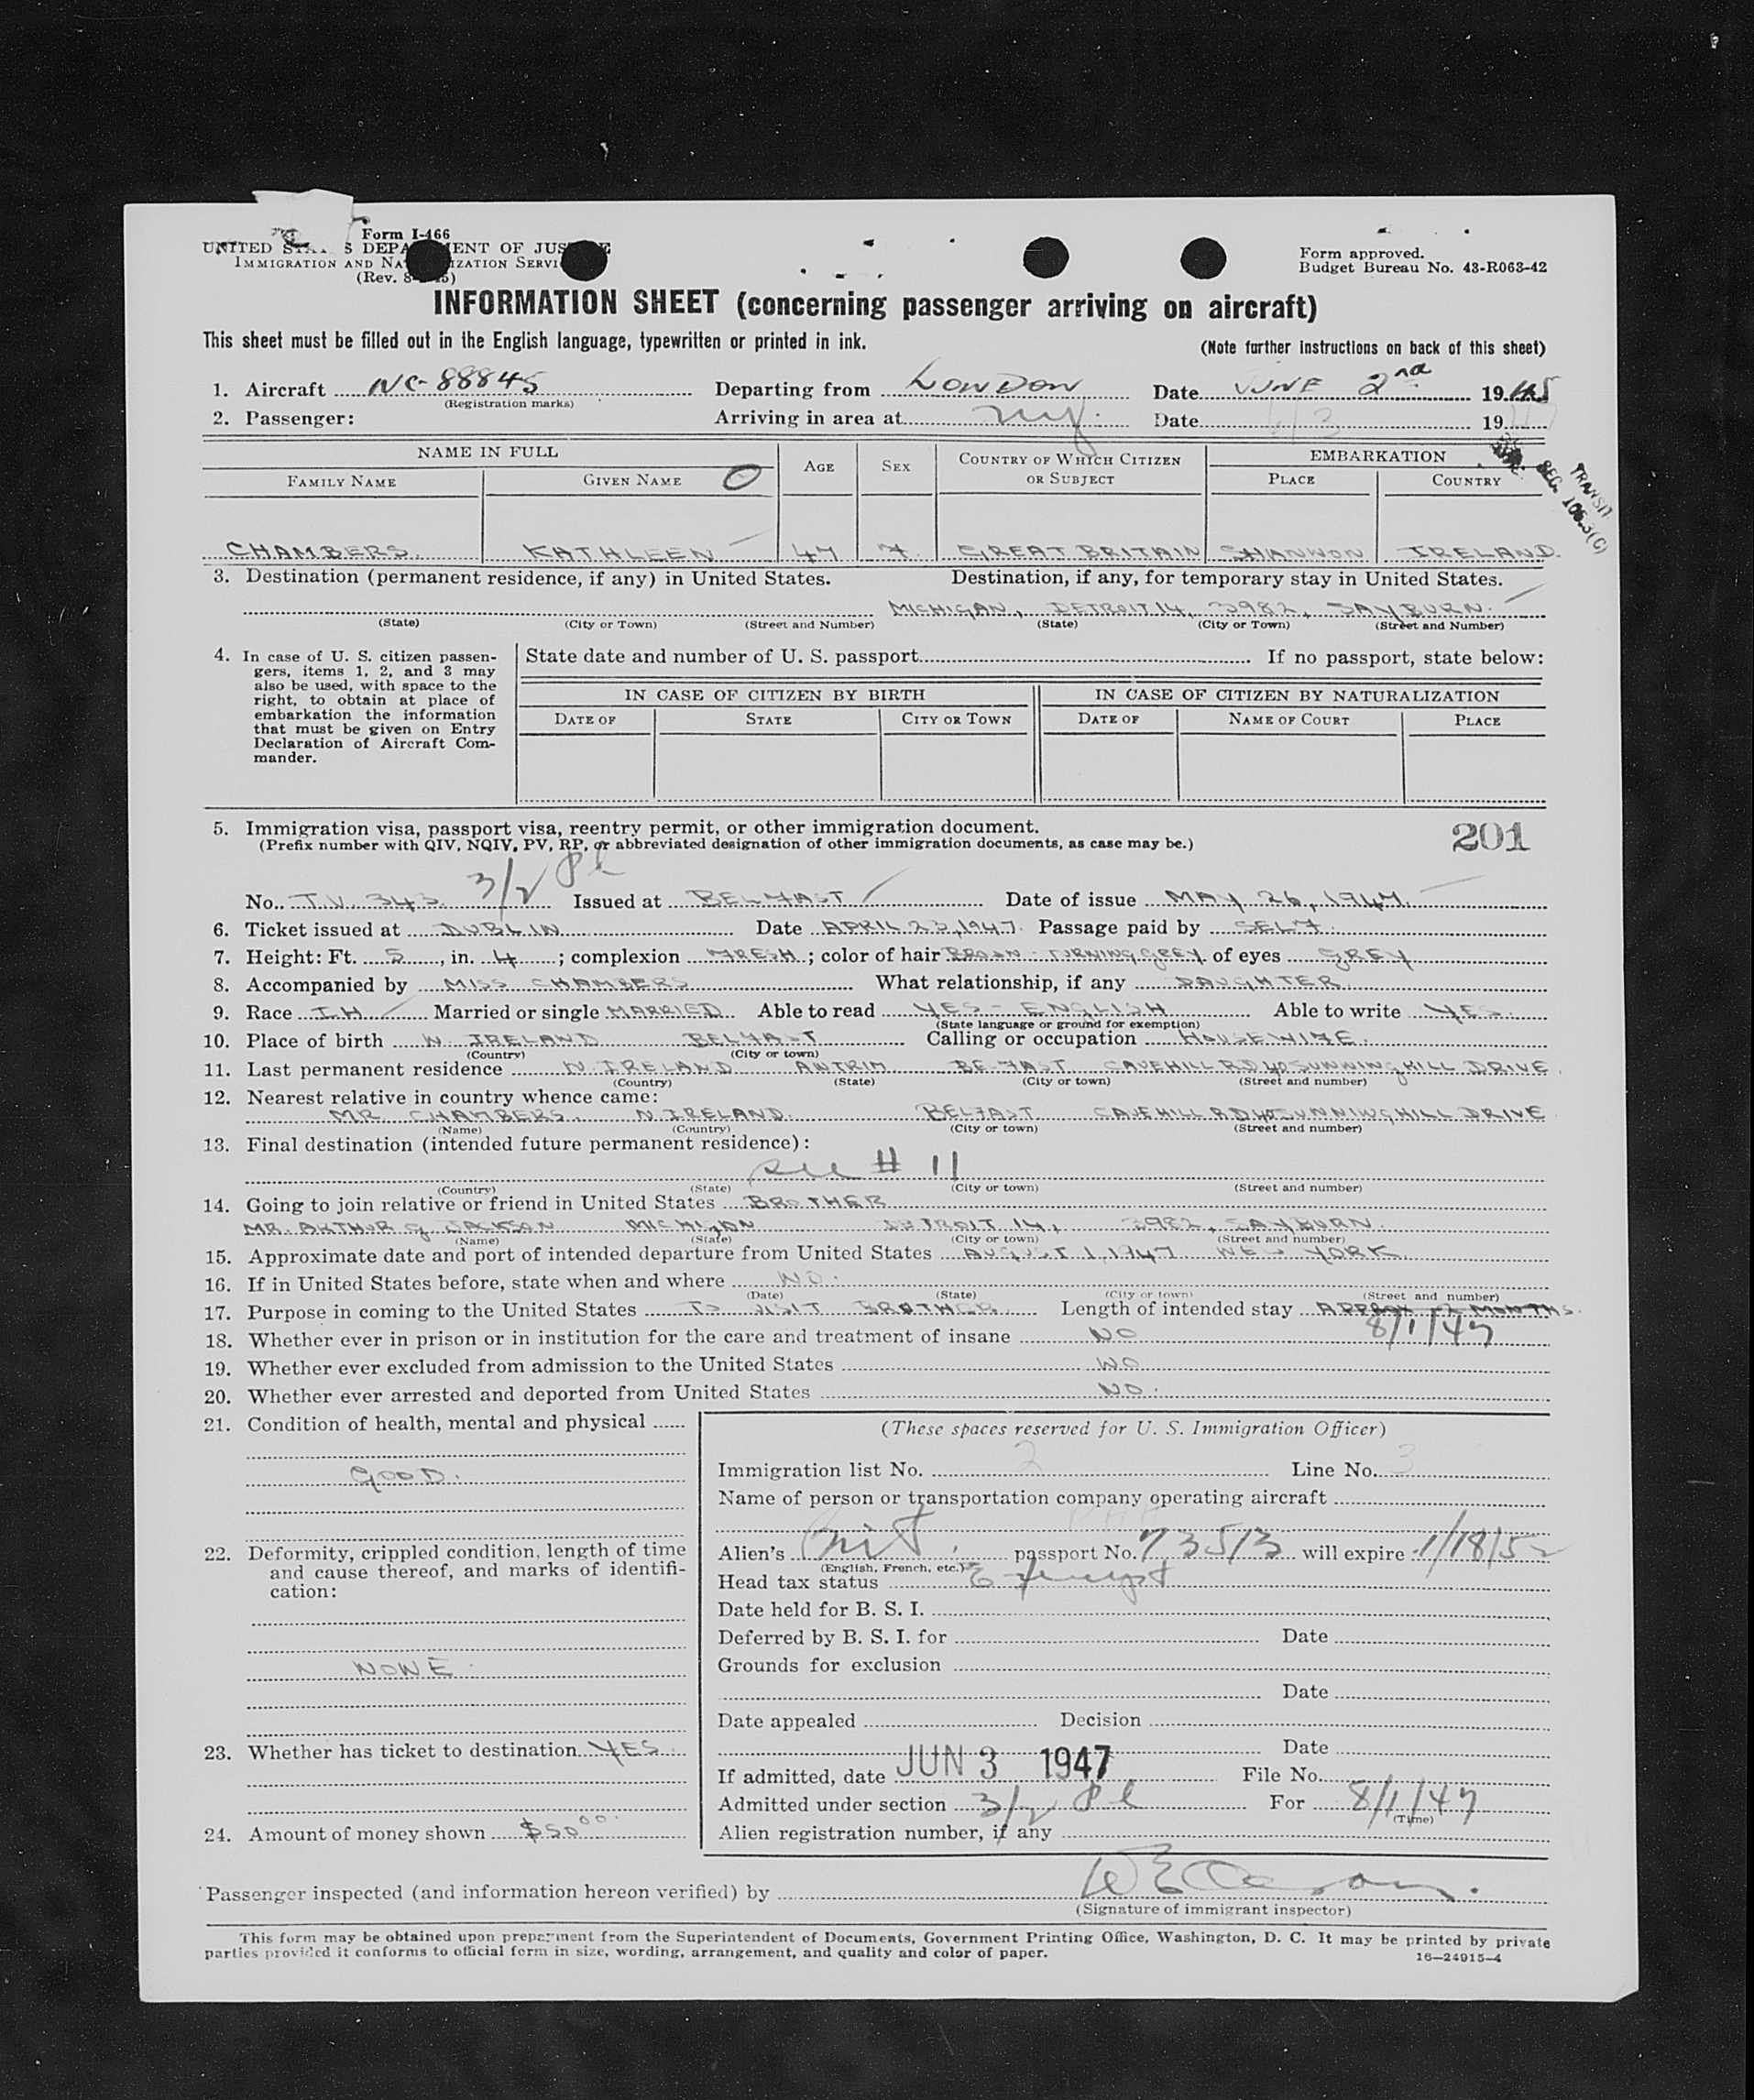 Form I-466
UNITED S S DEPA MENT OF JUS E
IMMIGRATION AND NA IZATION SERVI
(Rev. 8- 45)
Form approved.
Budget Bureau No. 43-R063-42
INFORMATION SHEET (concerning passenger arriving on aircraft)
This sheet must be filled out in the English language, typewritten or printed in ink.
(Note further instructions on back of this sheet)
1. Aircraft NC-88845 Departing from LONDON Date JUNE 2nd 19
(Registration marks)
2. Passenger: Arriving in area at NY. Date 6/3 19
NAME IN FULL AGE SEX COUNTRY OF WHICH CITIZEN OR SUBJECT EMBARKATION
FAMILY NAME GIVEN NAME O PLACE COUNTRY
TRANSIT
SEC. 106.3(C)
CHAMBERS. KATHLEEN 47 F. GREAT BRITAIN SHANNON IRELAND.
3. Destination (permanent residence, if any) in United States. Destination, if any, for temporary stay in United States.
MICHIGAN, DETROIT 14, 3982, SAYBURN.
(State) (City or Town) (Street and Number) (State) (City or Town) (Street and Number)
4. In case of U. S. citizen passen-
gers, items 1, 2, and 3 may
also be used, with space to the
right, to obtain at place of
embarkation the information
that must be given on Entry
Declaration of Aircraft Com-
mander.
State date and number of U. S. passport If no passport, state below:
IN CASE OF CITIZEN BY BIRTH IN CASE OF CITIZEN BY NATURALIZATION
DATE OF STATE CITY OR TOWN DATE OF NAME OF COURT PLACE
5. Immigration visa, passport visa, reentry permit, or other immigration document.
(Prefix number with QIV, NQIV, PV, RP, or abbreviated designation of other immigration documents, as case may be.)
201
3/2 Pl
No. T.V. 343. Issued at BELFAST Date of issue MAY 26, 1947.
6. Ticket issued at DUBLIN Date APRIL 23, 1947. Passage paid by SELF.
7. Height: Ft. 5, in. 4; complexion FRESH; color of hair BROWN - TURNING GREY of eyes GREY
8. Accompanied by MISS CHAMBERS What relationship, if any DAUGHTER.
9. Race IH Married or single MARRIED Able to read YES - ENGLISH Able to write YES.
(State language or ground for exemption)
10. Place of birth N. IRELAND BELFAST Calling or occupation HOUSEWIFE.
(Country) (City or town)
11. Last permanent residence N. IRELAND ANTRIM BELFAST CAVEHILL RD 40 SUNNINGHILL DRIVE.
(Country) (State) (City or town) (Street and number)
12. Nearest relative in country whence came:
MR CHAMBERS. N. IRELAND. BELFAST CAVEHILL RD 40 SUNNINGHILL DRIVE
(Name) (Country) (City or town) (Street and number)
13. Final destination (intended future permanent residence):
see # 11
(Country) (State) (City or town) (Street and number)
14. Going to join relative or friend in United States BROTHER
MR. ARTHUR G JACKSON MICHIGAN DETROIT 14, 3982, SAYBURN.
(Name) (State) (City or town) (Street and number)
15. Approximate date and port of intended departure from United States AUGUST 1, 1947 NEW YORK.
16. If in United States before, state when and where NO.
(Date) (State) (City or town) (Street and number)
17. Purpose in coming to the United States TO VISIT BROTHER Length of intended stay APPROX 2 MONTHS.
8/1/47
18. Whether ever in prison or in institution for the care and treatment of insane NO
19. Whether ever excluded from admission to the United States NO
20. Whether ever arrested and deported from United States NO.
21. Condition of health, mental and physical
GOOD.
22. Deformity, crippled condition, length of time
and cause thereof, and marks of identifi-
cation:
NONE.
23. Whether has ticket to destination YES.
24. Amount of money shown $50.00
(These spaces reserved for U. S. Immigration Officer)
Immigration list No. 2 Line No. 3
Name of person or transportation company operating aircraft
Alien's Brit. passport No. 73513 will expire 1/18/52
(English, French, etc.)
Head tax status Exempt
Date held for B. S. I.
Deferred by B. S. I. for Date
Grounds for exclusion
Date
Date appealed Decision
Date
If admitted, date JUN 3 1947 File No.
Admitted under section 3/2 Pl For 8/1/47
(Time)
Alien registration number, if any
Passenger inspected (and information hereon verified) by
(Signature of immigrant inspector)
This form may be obtained upon prepayment from the Superintendent of Documents, Government Printing Office, Washington, D. C. It may be printed by private
parties provided it conforms to official form in size, wording, arrangement, and quality and color of paper.
16—24915-4